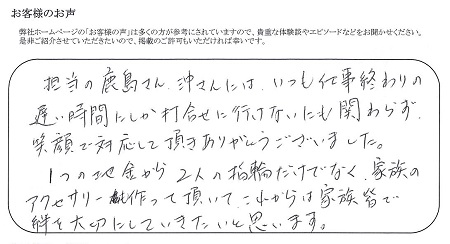 お客様のお声
弊社ホームページの「お客様の声」は多くの方が参考にされていますので、貴重な体験談やエピソードなどをお聞かせください。
是非ご紹介させていただきたいので、掲載のご許可もいただければ幸いです。
担当の鹿島さん、沖さんには、いつも仕事終わりの
遅い時間にしか打合せに行けないにも関わらず、
笑顔で対応して頂きありがとうございました。
1つの地金から2人の指輪だけでなく、家族の
アクセサリーも作って頂いて、これからは家族皆で
絆を大切にしていきたいと思います。